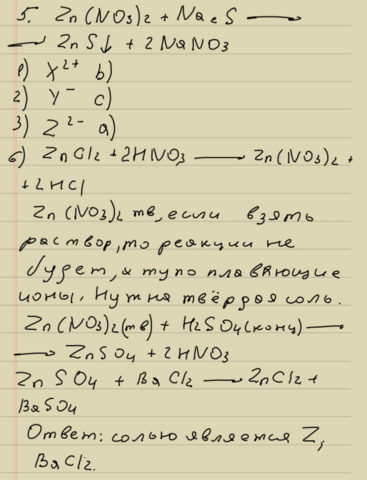 5. Zn(NO3)2 + Na2S ⟶
⟶ ZnS↓ + 2NaNO3
1) X2+ b)
2) Y- c)
3) Z2- a)
6) ZnCl2 + 2HNO3 ⟶ Zn(NO3)2 +
+ 2HCl
Zn(NO3)2 тв, если взять
раствор, то реакции не
будет, а тупо плавающие
ионы. Нужна твёрдая соль.
Zn(NO3)2(тв) + H2SO4(конц) ⟶
⟶ ZnSO4 + 2HNO3
ZnSO4 + BaCl2 ⟶ ZnCl2 +
BaSO4
Ответ: солью является Z,
BaCl2.